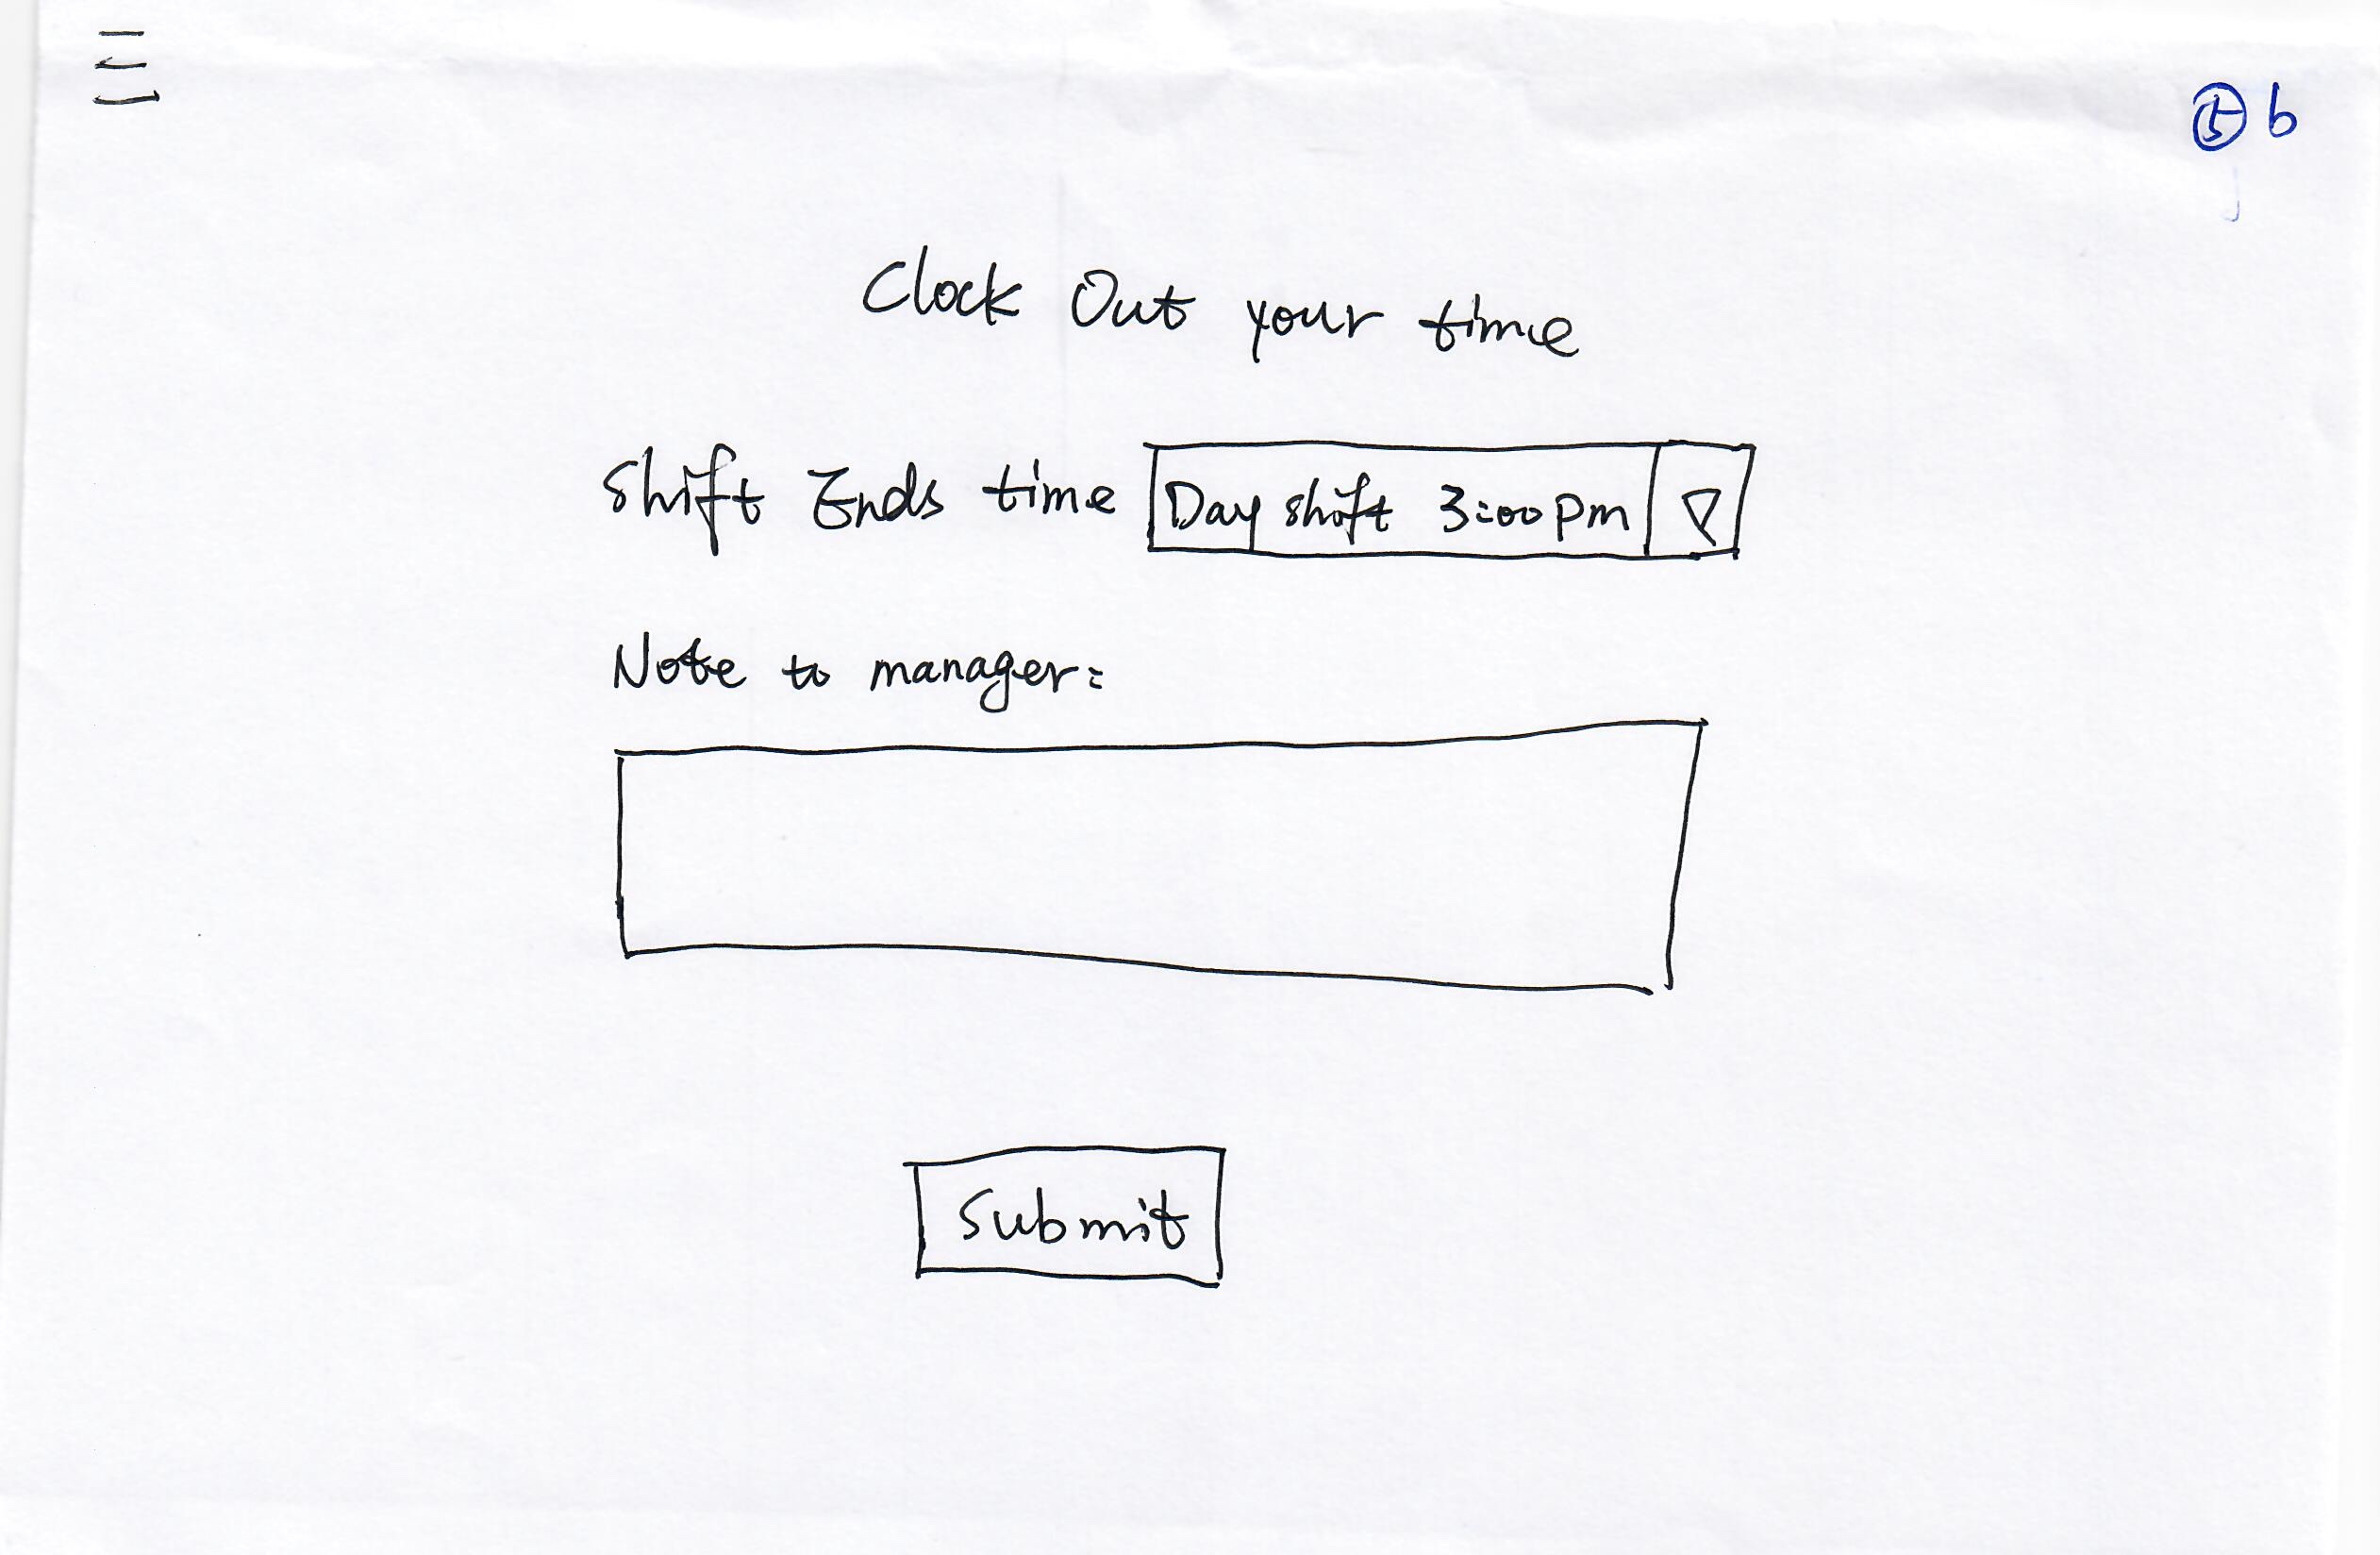 ⑤ b
Clock Out your time
Shift Ends time Day shift 3:00pm
Note to manager:
Submit